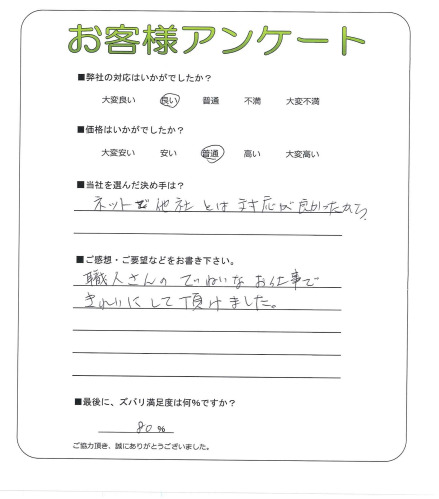 お客様アンケート
■弊社の対応はいかがでしたか？
大変良い 良い 普通 不満 大変不満
■価格はいかがでしたか？
大変安い 安い 普通 高い 大変高い
■当社を選んだ決め手は？
ネットで他社とは対応が良かったから
■ご感想・ご要望などをお書き下さい。
職人さんのていねいなお仕事で
きれいにして頂けました。
■最後に、ズバリ満足度は何%ですか？
80 %
ご協力頂き、誠にありがとうございました。